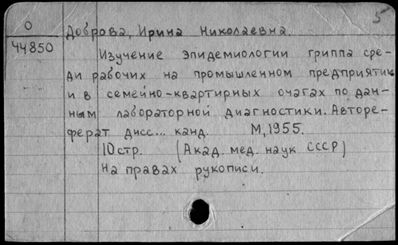 5
О
Доброва, Ирина Николаевна.
44850
Изучение эпидемиологии гриппа сре-
ди рабочих на промышленном предприятии
и в семейно-квартирных очагах по дан-
ным лабораторной диагностики. Авторе-
ферат дисс... канд. М, 1955.
10стр. (Акад. мед. наук СССР)
На правах рукописи.